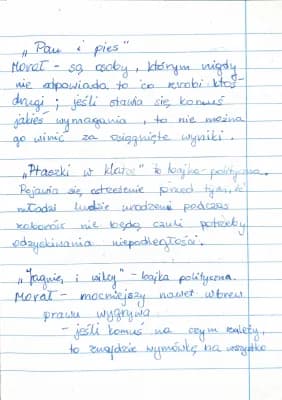 „Pan i pies"
Morał - są osoby, którym nigdy
nie odpowiada to co zrobi ktoś
drugi; jeśli stawia się komuś
jakieś wymagania, to nie można
go winić za osiągnięte wyniki.
„Ptaszki w klatce" to bajka polityczna.
Pojawia się ostrzeżenie przed tym, że
młodzi ludzie urodzeni podczas
zaborów nie będą czuli potrzeby
odzyskiwania niepodległości.
„Jagnię i wilcy" - bajka polityczna.
Morał - mocniejszy nawet wbrew
prawu wygrywa
- jeśli komuś na czym zależy,
to znajdzie wymówkę na wszystko